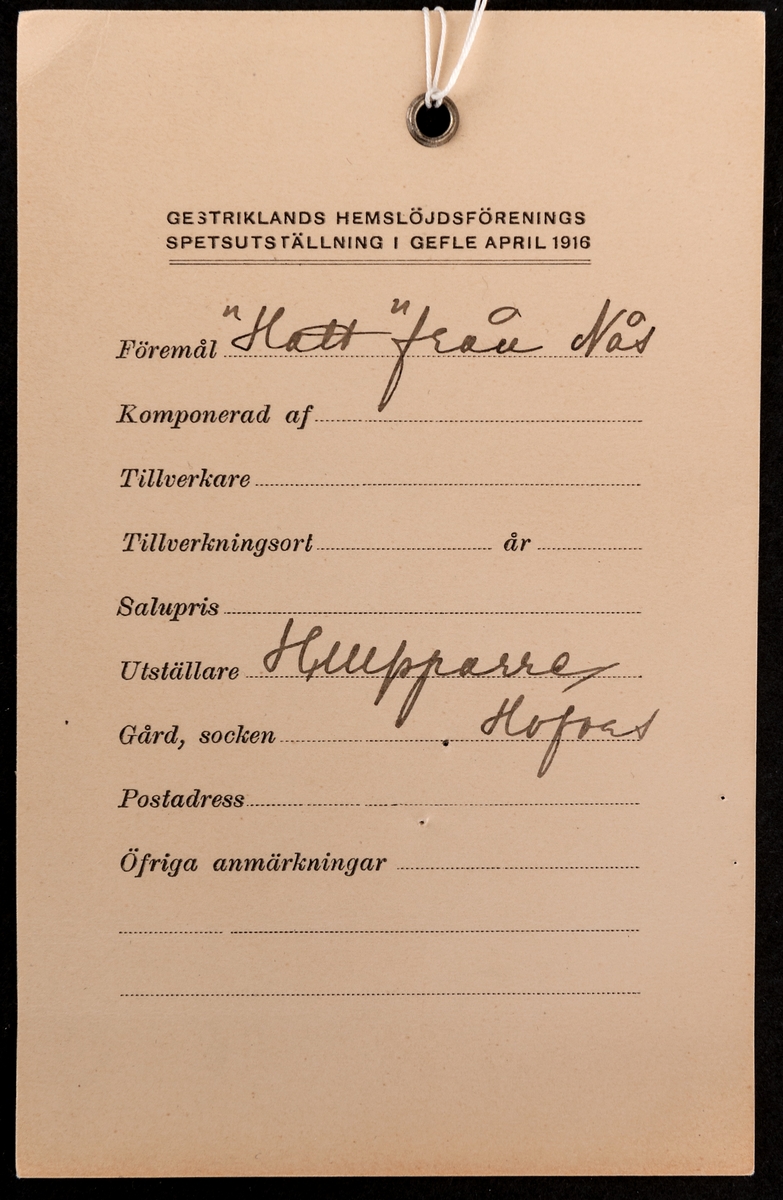 GESTRIKLANDS HEMSLÖJDSFÖRENINGS
SPETSUTSTÄLLNING I GEFLE APRIL 1916
Föremål "Hatt" från Nås
Komponerad af
Tillverkare
Tillverkningsort år
Salupris
Utställare
Gård, socken Hofors
Postadress
Öfriga anmärkningar